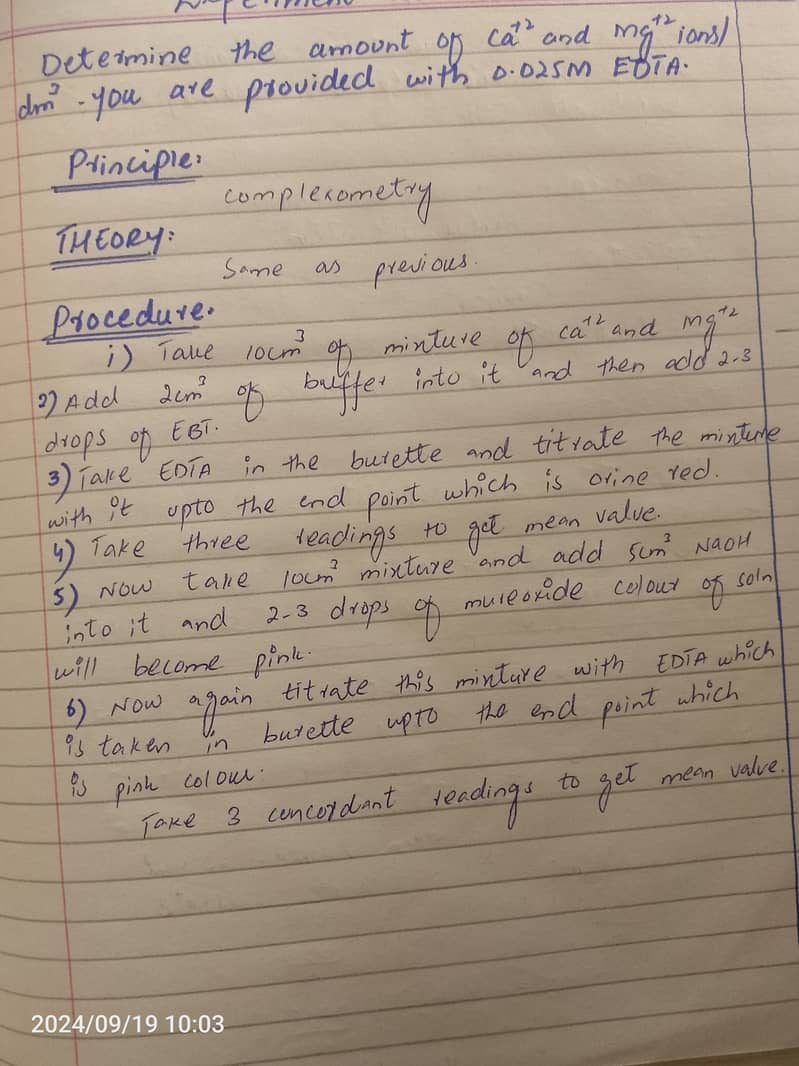 Experiment
Determine the amount of Ca⁺² and Mg⁺² ions/
dm³. You are provided with 0.025M EDTA.
Principle:
complexometry
THEORY:
Same as previous.
Procedure.
i) Take 10cm³ of mixture of Ca⁺² and Mg⁺²
2) Add 2cm³ of buffer into it and then add 2-3
drops of EBT.
3) Take EDTA in the burette and titrate the mixture
with it upto the end point which is orine red.
4) Take three readings to get mean value.
5) Now take 10cm³ mixture and add 5cm³ NaOH
into it and 2-3 drops of mureoxide colour of soln
will become pink.
6) Now again titrate this mixture with EDTA which
is taken in burette upto the end point which
is pink colour.
Take 3 concordant readings to get mean value.
2024/09/19 10:03